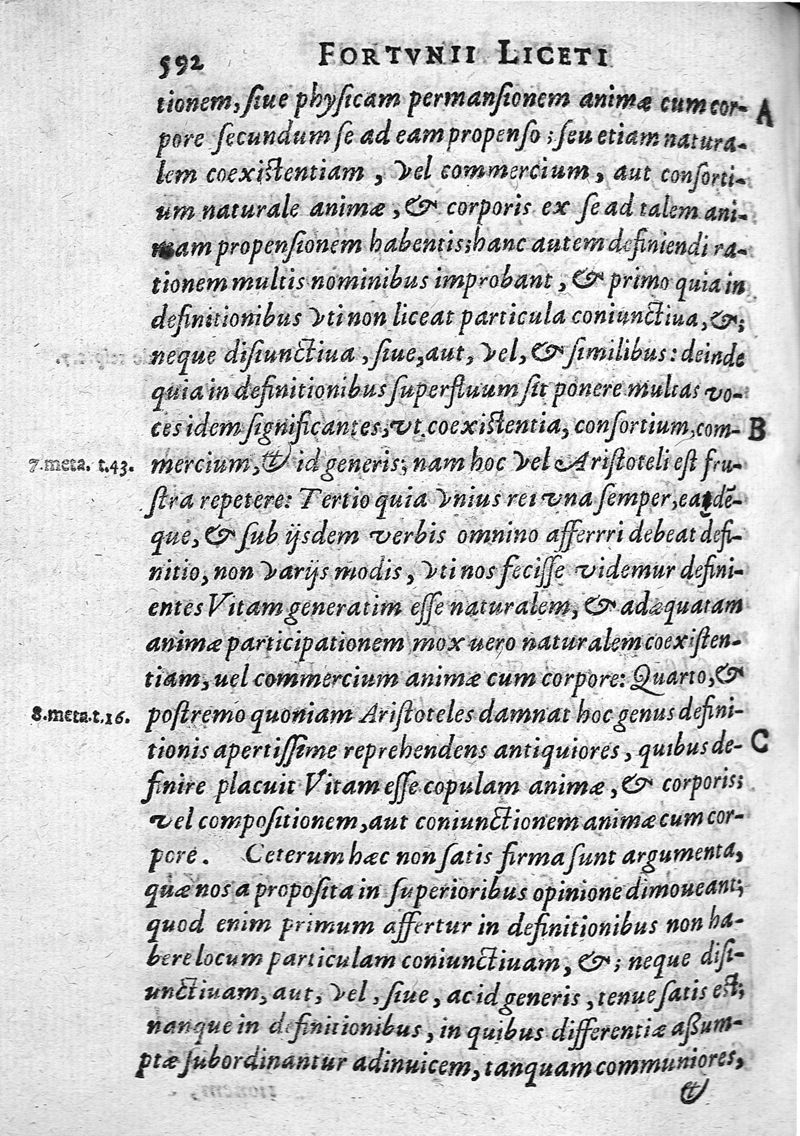 592 FORTVNII LICETI
tionem, siue physicam permansionem animæ cum cor- A
pore secundum se ad eam propenso; seu etiam natura-
lem coexistentiam, vel commercium, aut consorti-
um naturale animæ, & corporis ex se ad talem ani-
mam propensionem habentis; hanc autem definiendi ra-
tionem multis nominibus improbant, & primo quia in
definitionibus vti non liceat particula coniunctiua, &;
neque disiunctiua, siue, aut, vel, & similibus: deinde
quia in definitionibus superfluum sit ponere multas vo-
ces idem significantes, vt coexistentia, consortium, com- B
7. meta. t.43. mercium, & id generis; nam hoc vel Aristoteli est fru-
stra repetere: Tertio quia vnius rei vna semper, eadē-
que, & sub ijsdem verbis omnino afferrri debeat defi-
nitio, non varijs modis, vti nos fecisse videmur defini-
entes Vitam generatim esse naturalem, & adæquatam
animæ participationem mox uero naturalem coexisten-
tiam, uel commercium animæ cum corpore: Quarto, &
8. meta. t.16. postremo quoniam Aristoteles damnat hoc genus defini-
tionis apertissime reprehendens antiquiores, quibus de- C
finire placuit Vitam esse copulam animæ, & corporis;
vel compositionem, aut coniunctionem animæ cum cor-
pore. Ceterum hæc non satis firma sunt argumenta,
quæ nos a proposita in superioribus opinione dimoueant;
quod enim primum affertur in definitionibus non ha-
bere locum particulam coniunctiuam, &; neque disi-
unctiuam, aut, vel, siue, ac id generis, tenue satis est;
nanque in definitionibus, in quibus differentiæ assum-
ptæ subordinantur adinuicem, tanquam communiores,
&